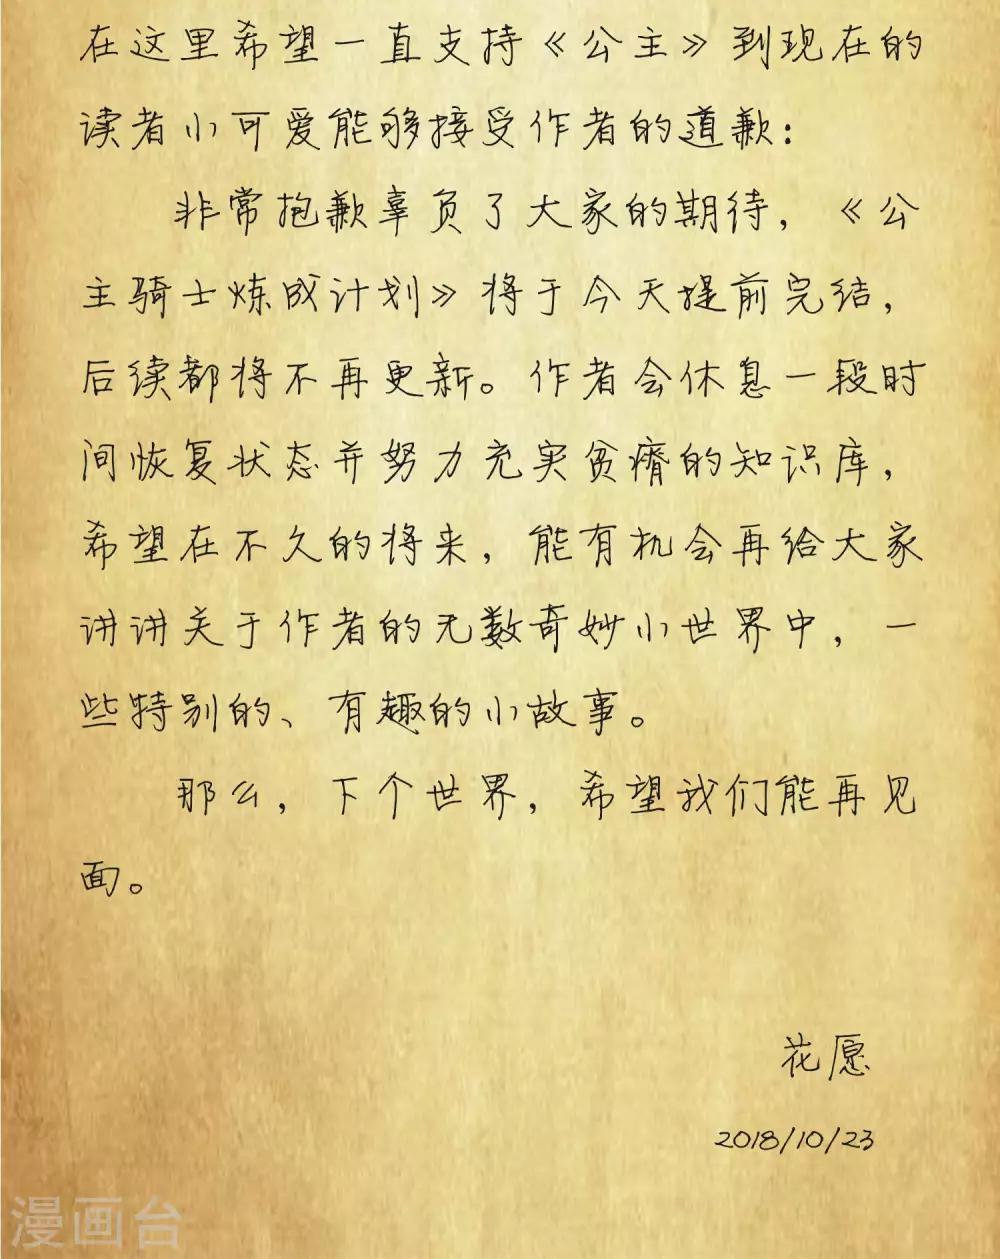 在这里希望一直支持《公主》到现在的
读者小可爱能够接受作者的道歉：
非常抱歉辜负了大家的期待，《公
主骑士炼成计划》将于今天提前完结，
后续都将不再更新。作者会休息一段时
间恢复状态并努力充实贫瘠的知识库，
希望在不久的将来，能有机会再给大家
讲讲关于作者的无数奇妙小世界中，一
些特别的、有趣的小故事。
那么，下个世界，希望我们能再见
面。
花愿
2018/10/23
漫画台